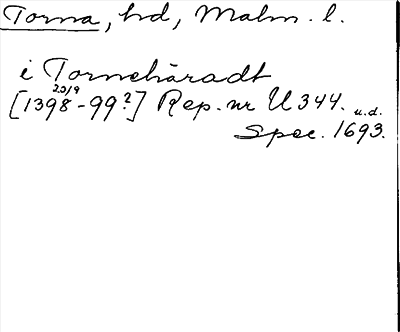 Torna, hd, Malm. l.
i Torneháradt
20/9
[1398-99?] Rep. nr U 344. u.d.
Spec. 1693.